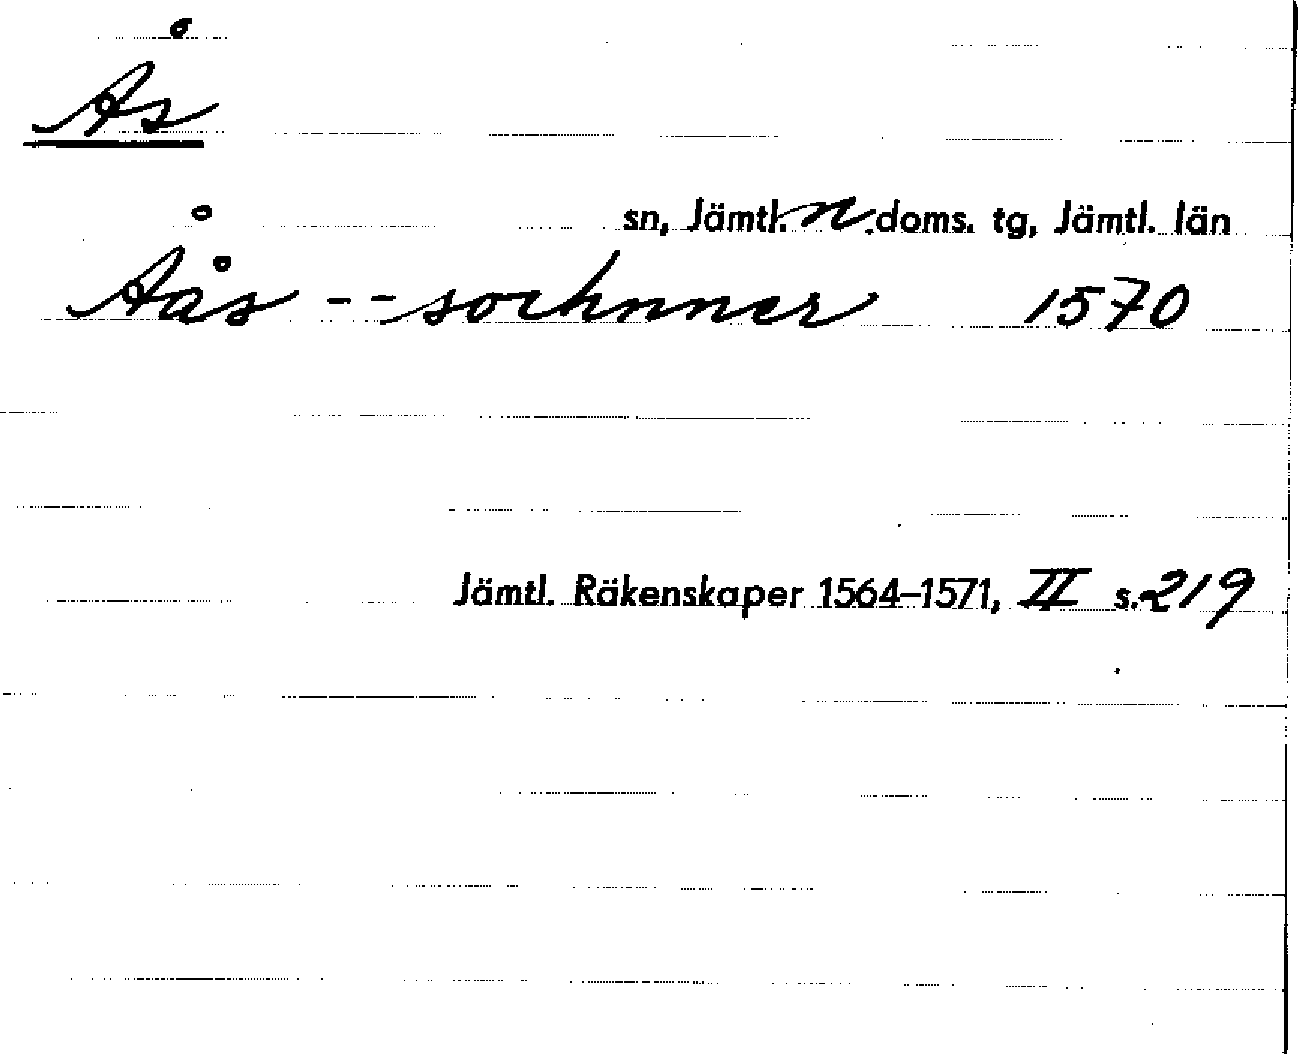 Ås
sn, Jämtl. n. doms. tg, Jämtl. län
Åås -- sochnner 1570
Jämtl. Räkenskaper 1564–1571, II s. 219